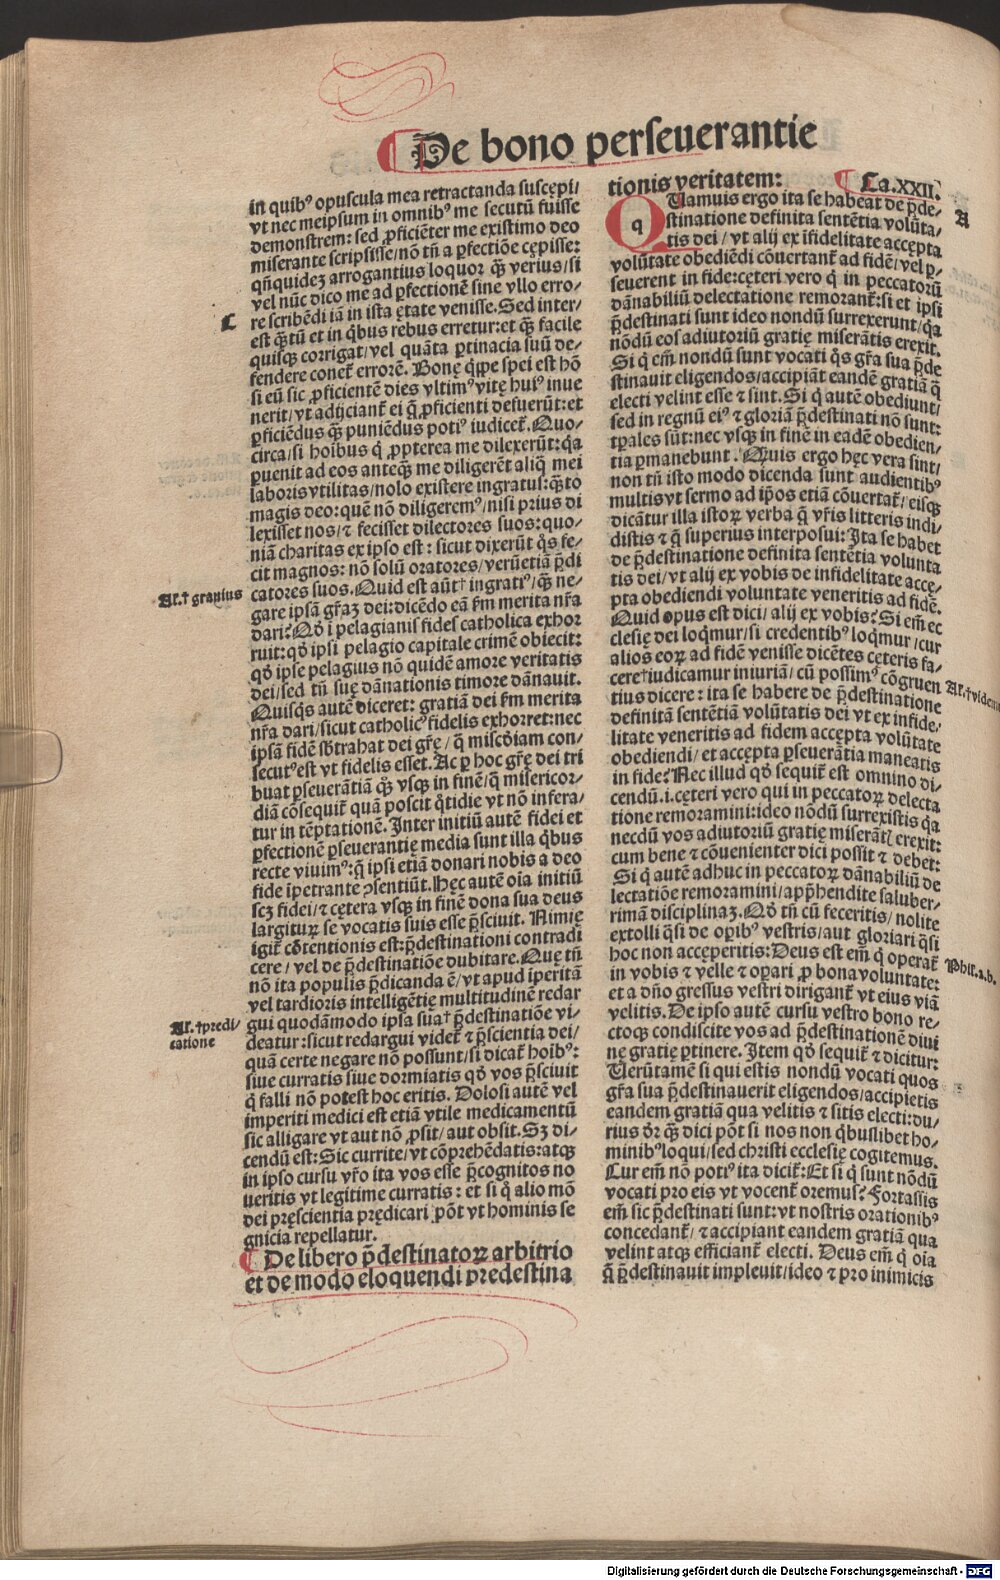 De bono perseuerantie
in quibꝰ opuscula mea retractanda suscępi/
vt nec meipsum in omnibꝰ me secutū fuisse
demonstrem: sed ꝓficiēter me existimo deo
miserante scripsisse/nō tn̄ a ꝑfectiōe cępisse:
qn̄quidez arrogantius loquor qꝫ̄ verius/si
vel nūc dico me ad ꝑfectionē sine vllo erro/
C
re scribēdi iā in ista ętate venisse. Sed inter/
est qꝫ̄tū et in qͥbus rebus erretur: et qꝫ̄ facile
quisqꝫ corrigat/vel quāta ꝑtinacia suū de/
fendere coneť errorē. Bonę qͥppe spei est hō
si eū sic ꝓficientē dies vltimꝰ vitę huiꝰ inue
nerit/vt adijcianť ei q̄ ꝓficienti defuerūt: et
ꝑficiēdus qꝫ̄ puniēdus potiꝰ iudiceť. Quo/
circa/si hoibus qͥ ꝓpterea me dilexerūt: qͥa
ꝑuenit ad eos anteqꝫ̄ me diligerēt aliqͣ mei
laboris vtilitas/nolo existere ingratus: qꝫ̄to
magis deo: quē nō diligeremꝰ/nisi prius di
lexisset nos/⁊ fecisset dilectores suos: quo/
niā charitas ex ipso est: sicut dixerūt qͦs fe/
cit magnos: nō solū oratores/verūetiā p̄di
Al.† grauius
catores suos. Quid est aūt† ingratiꝰ/qꝫ̄ ne/
gare ipsā gr̄aꝫ dei: dicēdo eā ẜm merita nr̄a
dari? Qd̓ ī pelagianis fides catholica exhor
ruit: qd̓ ipsi pelagio capitale crimē obiecit:
qd̓ ipse pelagius nō quidē amore veritatis
dei/sed tn̄ suę dānationis timore dānauit.
Quisqͥs autē diceret: gratiā dei ẜm merita
nr̄a dari/sicut catholicꝰ fidelis exhorret: nec
ipsā fidē sb̓trahat dei gr̄ę/q̄ misc̓diam con/
secutꝰest vt fidelis esset. Ac ꝑ hoc gr̄ę dei tri
buat ꝑseuerātiā qꝫ̄ vsqꝫ in finē/q̄ misericor/
diā cōsequiť quā poscit qͦtidie vt nō infera/
tur in tēptationē. Inter initiū autē fidei et
ꝑfectionē ꝑseuerantię media sunt illa qͥbus
recte viuimꝰ: q̄ ipsi etiā donari nobis a deo
fide īpetrante ↄsentiūt. Hęc autē oīa initiū
scꝫ fidei/⁊ cętera vsqꝫ in finē dona sua deus
largiturꝫ se vocatis suis esse p̄sciuit. Nimię
igiť cōtentionis est: p̄destinationi contradi
cere/vel de p̄destinatiōe dubitare. Quę tn̄
nō ita populis p̄dicanda ē/vt apud iperitā
vel tardioris intelligētię multitudinē redar
Al. †predi/
catione
gui quodāmodo ipsa sua† p̄destinatiōe vi/
deatur: sicut redargui videť ⁊ p̄scientia dei/
quā certe negare nō possunt/si dicať hoibꝰ:
siue curratis siue dormiatis qd̓ vos p̄sciuit
qͥ falli nō potest hoc eritis. Dolosi autē vel
imperiti medici est etiā vtile medicamentū
sic alligare vt aut nō ꝓsit/aut obsit. Sꝫ di/
cendū est: Sic currite/vt cōprehēdatis: atqꝫ
in ipso cursu vr̄o ita vos esse p̄cognitos no
ueritis vt legitime curratis: et si qͦ alio mō
dei pręscientia prędicari pōt vt hominis se
gnicia repellatur.
De libero p̄destinatoꝝ arbitrio
et de modo eloquendi predestina
tionis veritatem: Ca.XXII.
A
QUamuis ergo ita se habeat de p̄de/
stinatione definita sentētia volūta/
tis dei/vt alij ex īfidelitate accepta
volūtate obediēdi cōuertanť ad fidē/vel ꝑ/
seuerent in fide: cęteri vero qͥ in peccatorū
dānabiliū delectatione remoranť: si et ipsi
p̄destinati sunt ideo nondū surrexerunt/qͥa
nōdū eos adiutoriū gratię miserātis erexit.
Si qͥ em̄ nondū sunt vocati qͦs gr̄a sua p̄de
stinauit eligendos/accipiāt eandē gratiā q̄
electi velint esse ⁊ sint. Si qͥ autē obediunt/
sed in regnū eiꝰ ⁊ gloriā p̄destinati nō sunt:
tꝑales sūt: nec vsqꝫ in finē in eadē obedien/
tia ꝑmanebunt. Quis ergo hęc vera sint/
non tn̄ isto modo dicenda sunt audientibꝰ
multis vt sermo ad ip̄os etiā cōuertať/eisqꝫ
dicātur illa istoꝝ verba q̄ vr̄is litteris indi/
distis ⁊ q̄ superius interposui: Ita se habet
de p̄destinatione definita sentētia volunta
tis dei/vt alij ex vobis de infidelitate acce/
pta obediendi voluntate veneritis ad fidē.
Quid opus est dici/alij ex vobis? Si em̄ ec
clesię dei loqͥmur/si credentibꝰ loqͥmur/cur
alios eoꝝ ad fidē venisse dicētes cęteris fa/
cere†iudicamur iniuriā/cū possimꝰ cōgruen
Al.†videmur
tius dicere: ita se habere de p̄destinatione
definitā sentētiā volūtatis dei vt ex infide/
litate veneritis ad fidem accepta volūtate
obediendi/et accepta ꝑseuerātia maneatis
in fide? Nec illud qd̓ sequiť est omnino di/
cendū.i.cęteri vero qui in peccatoꝝ delecta
tione remoramini: ideo nōdū surrexistis qͥa
necdū vos adiutoriū gratię miserātꝭ erexit:
cum bene ⁊ cōuenienter dici possit ⁊ debet:
Si qͥ autē adhuc in peccatoꝝ dānabiliū de
lectatiōe remoramini/app̄hendite saluber/
rimā disciplinaꝫ. Qd̓ tn̄ cū feceritis/nolite
extolli qͣsi de oꝑibꝰ vestris/aut gloriari qͣsi
hoc non acceperitis: Deus est em̄ qͥ operať
Phil.2.b.
in vobis ⁊ velle ⁊ oꝑari ꝓ bona voluntate:
et a dn̄o gressus vestri diriganť vt eius viā
velitis. De ipso autē cursu vestro bono re/
ctoqꝫ condiscite vos ad p̄destinationē diui
nę gratię ꝑtinere. Item qd̓ sequiť ⁊ dicitur:
Verūtamē si qui estis nondū vocati quos
gr̄a sua p̄destinauerit eligendos/accipietis
eandem gratiā qua velitis ⁊ sitis electi: du/
rius dr̓ qꝫ̄ dici pōt si nos non qͥbuslibet ho/
minibꝰloqui/sed christi ecclesię cogitemus.
Cur em̄ nō potiꝰ ita diciť: Et si qͥ sunt nōdū
vocati pro eis vt vocenť oremus? Fortassis
em̄ sic p̄destinati sunt: vt nostris orationibꝰ
concedanť/⁊ accipiant eandem gratiā qua
velint atqꝫ efficianť electi. Deus em̄ qͥ oīa
q̄ p̄destinauit impleuit/ideo ⁊ pro inimicis
Digitalisierung gefördert durch die Deutsche Forschungsgemeinschaft - DFG